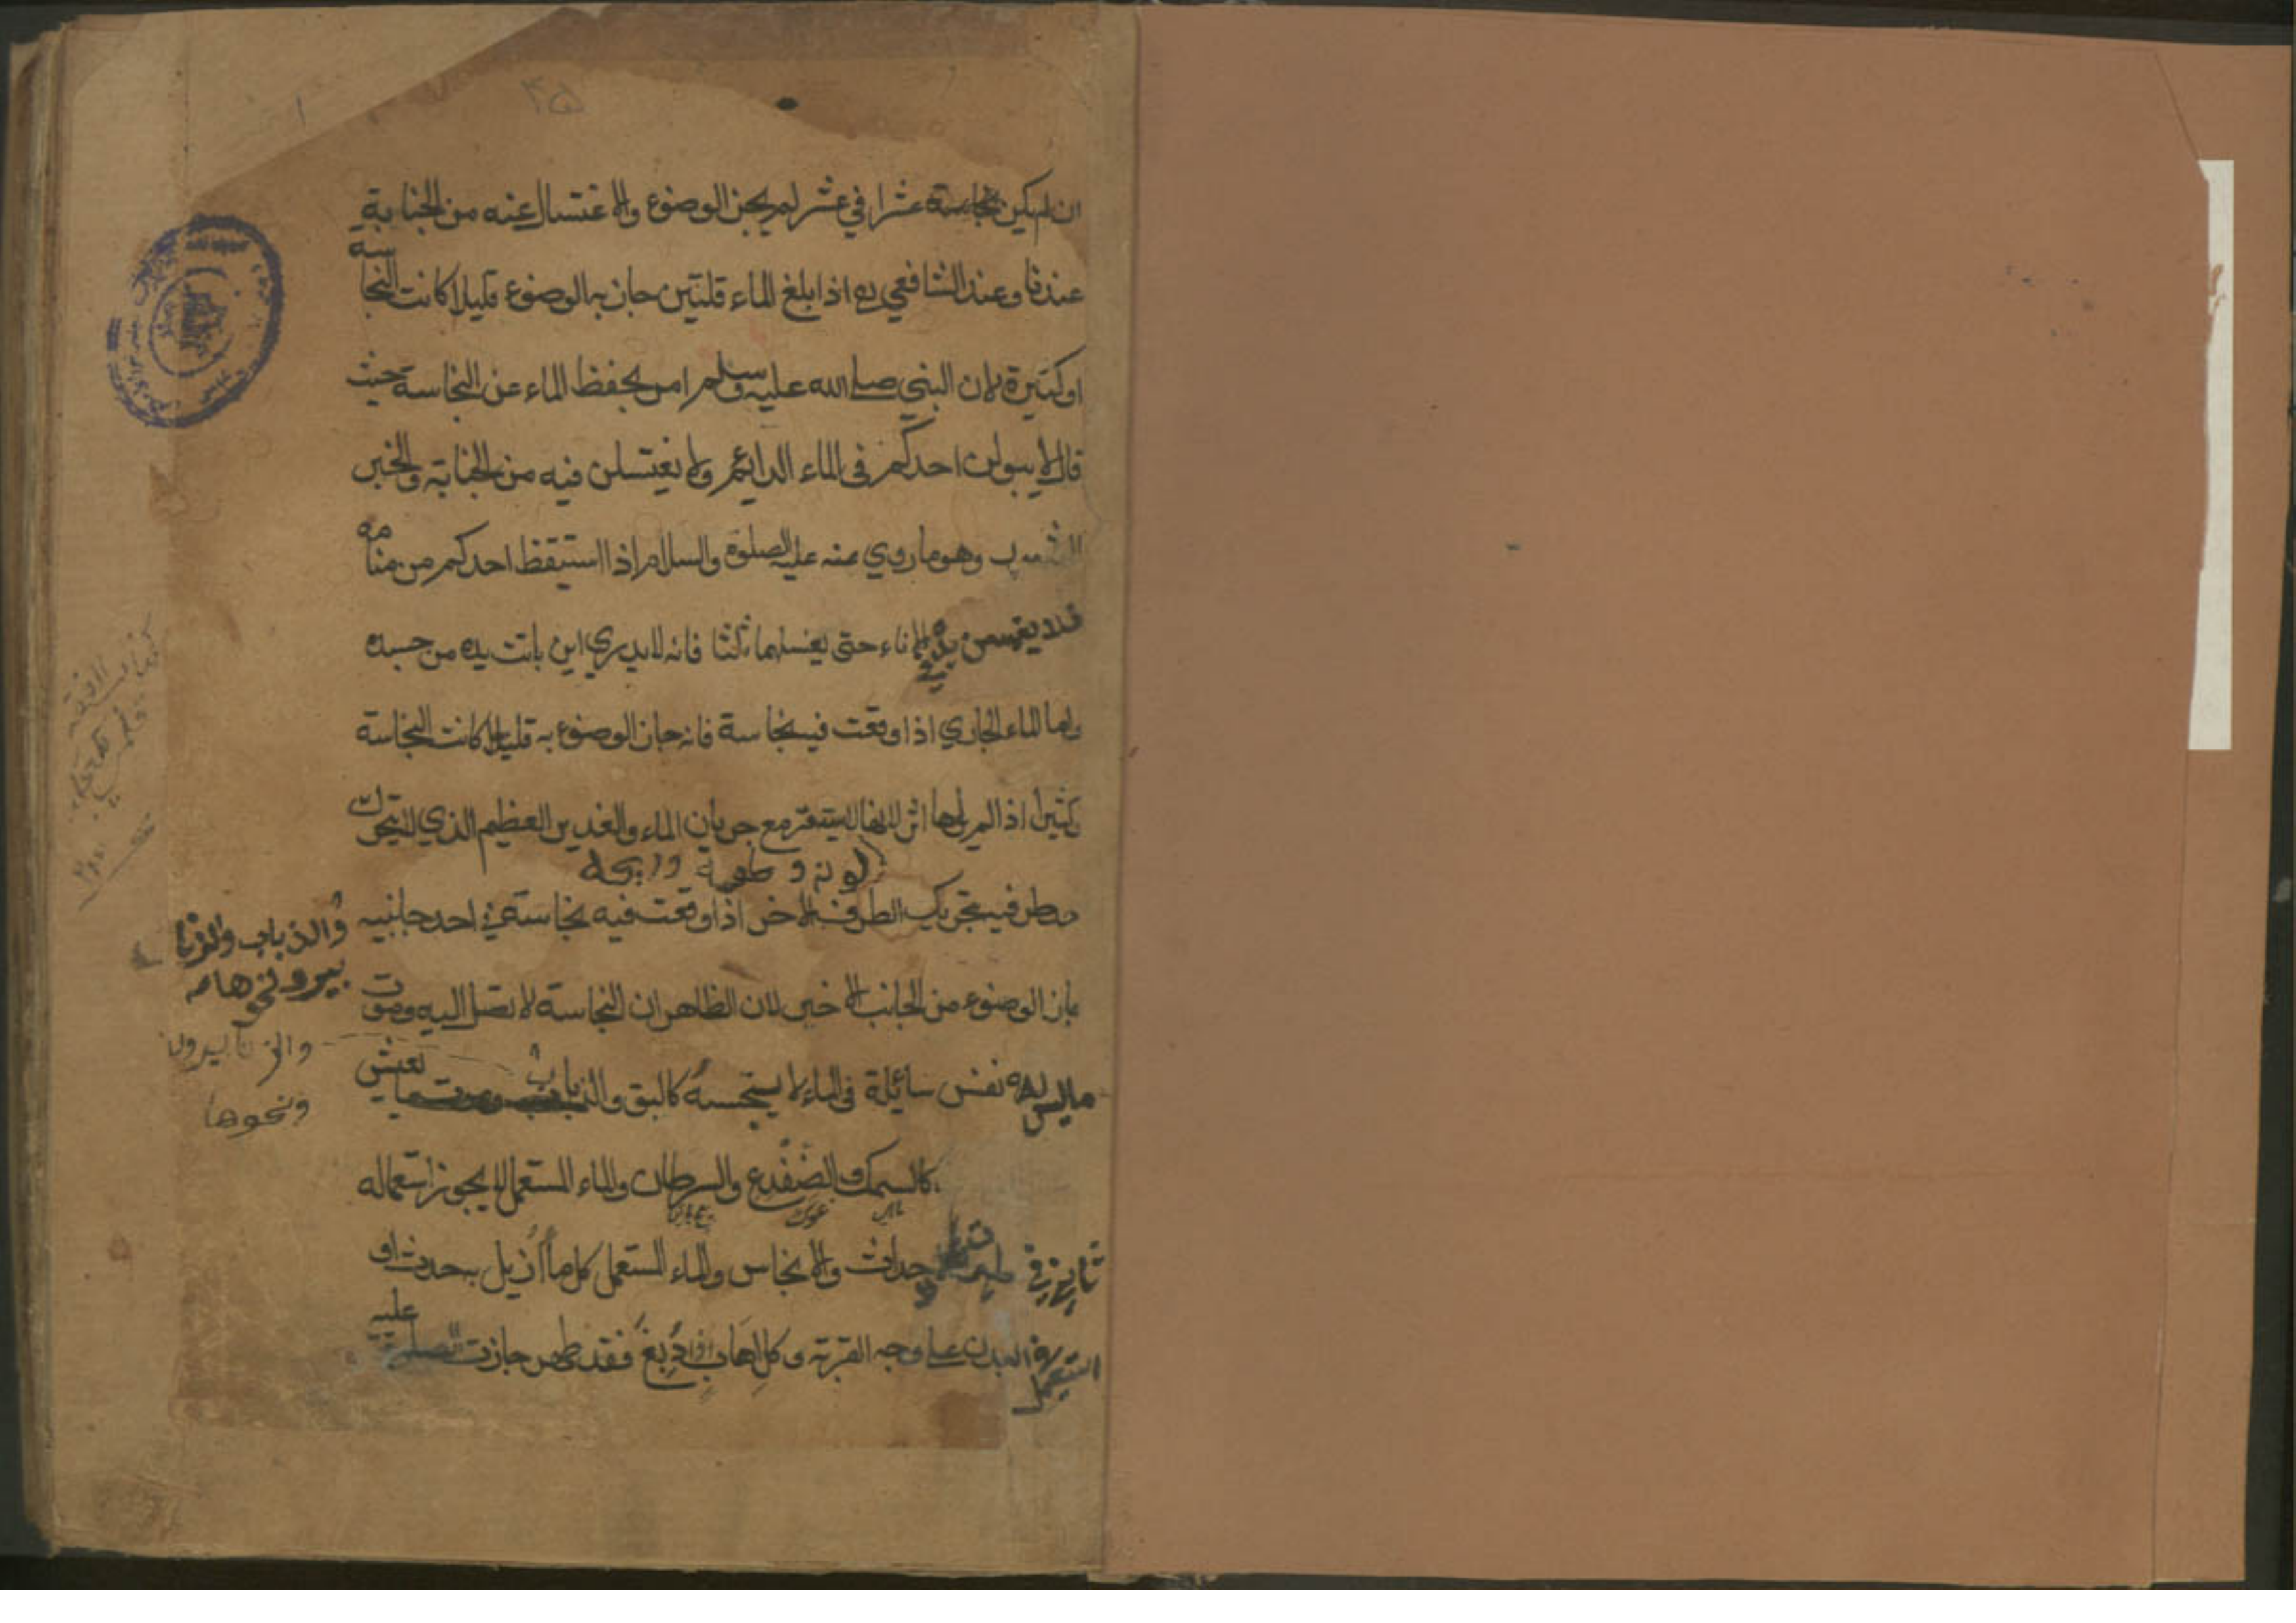 ان لم يكن نجاسة عشرا في عشر لم يجز الوضوء والاغتسال عنه من الجنابة
عندنا وعند الشافعي ره اذا بلغ الماء قلتين جاز به الوضوء قليلا كانت النجاسة
او كثيرة لان النبي صلى الله عليه وسلم امر بحفظ الماء عن النجاسة حيث
قال لا يبولن احدكم في الماء الدايم ولا يغتسلن فيه من الجنابة والخبر
وهو ما روي عنه عليه الصلوة والسلام اذا استيقظ احدكم من منامه
فلا يغمسن يده في الاناء حتى يغسلهما ثلثا فانه لا يدري اين باتت يده من جسده
واما الماء الجاري اذا وقعت فيه نجاسة فانه جاز الوضوء به قليلا كانت النجاسة
كثيرا اذا لم ير لها اثر لانها لا يستقر مع جريان الماء والغدير العظيم الذي لا يتحرك
لونه و طعمه و ريحه
طرفيه بتحريك الطرف الاخر اذا وقعت فيه نجاسة في احد جانبيه
جاز الوضوء من الجانب الاخير لان الظاهر ان النجاسة لا تصل اليه وموت
ما ليس له نفس سائلة في الماء لا ينجسه كالبق والذباب وموت ما يعيش
والذباب والزنا
بير ونحوها
والزنابيرون
ونحوها
كالسمك والضفدع والسرطان والماء المستعمل لا يجوز استعماله
في احداث والانجاس والماء المستعمل كل ما ازيل به حدث او
استعمل في البدن على وجه القربة وكل اهاب اذا دبغ فقد طهر جازت الصلوة عليه
۴۵